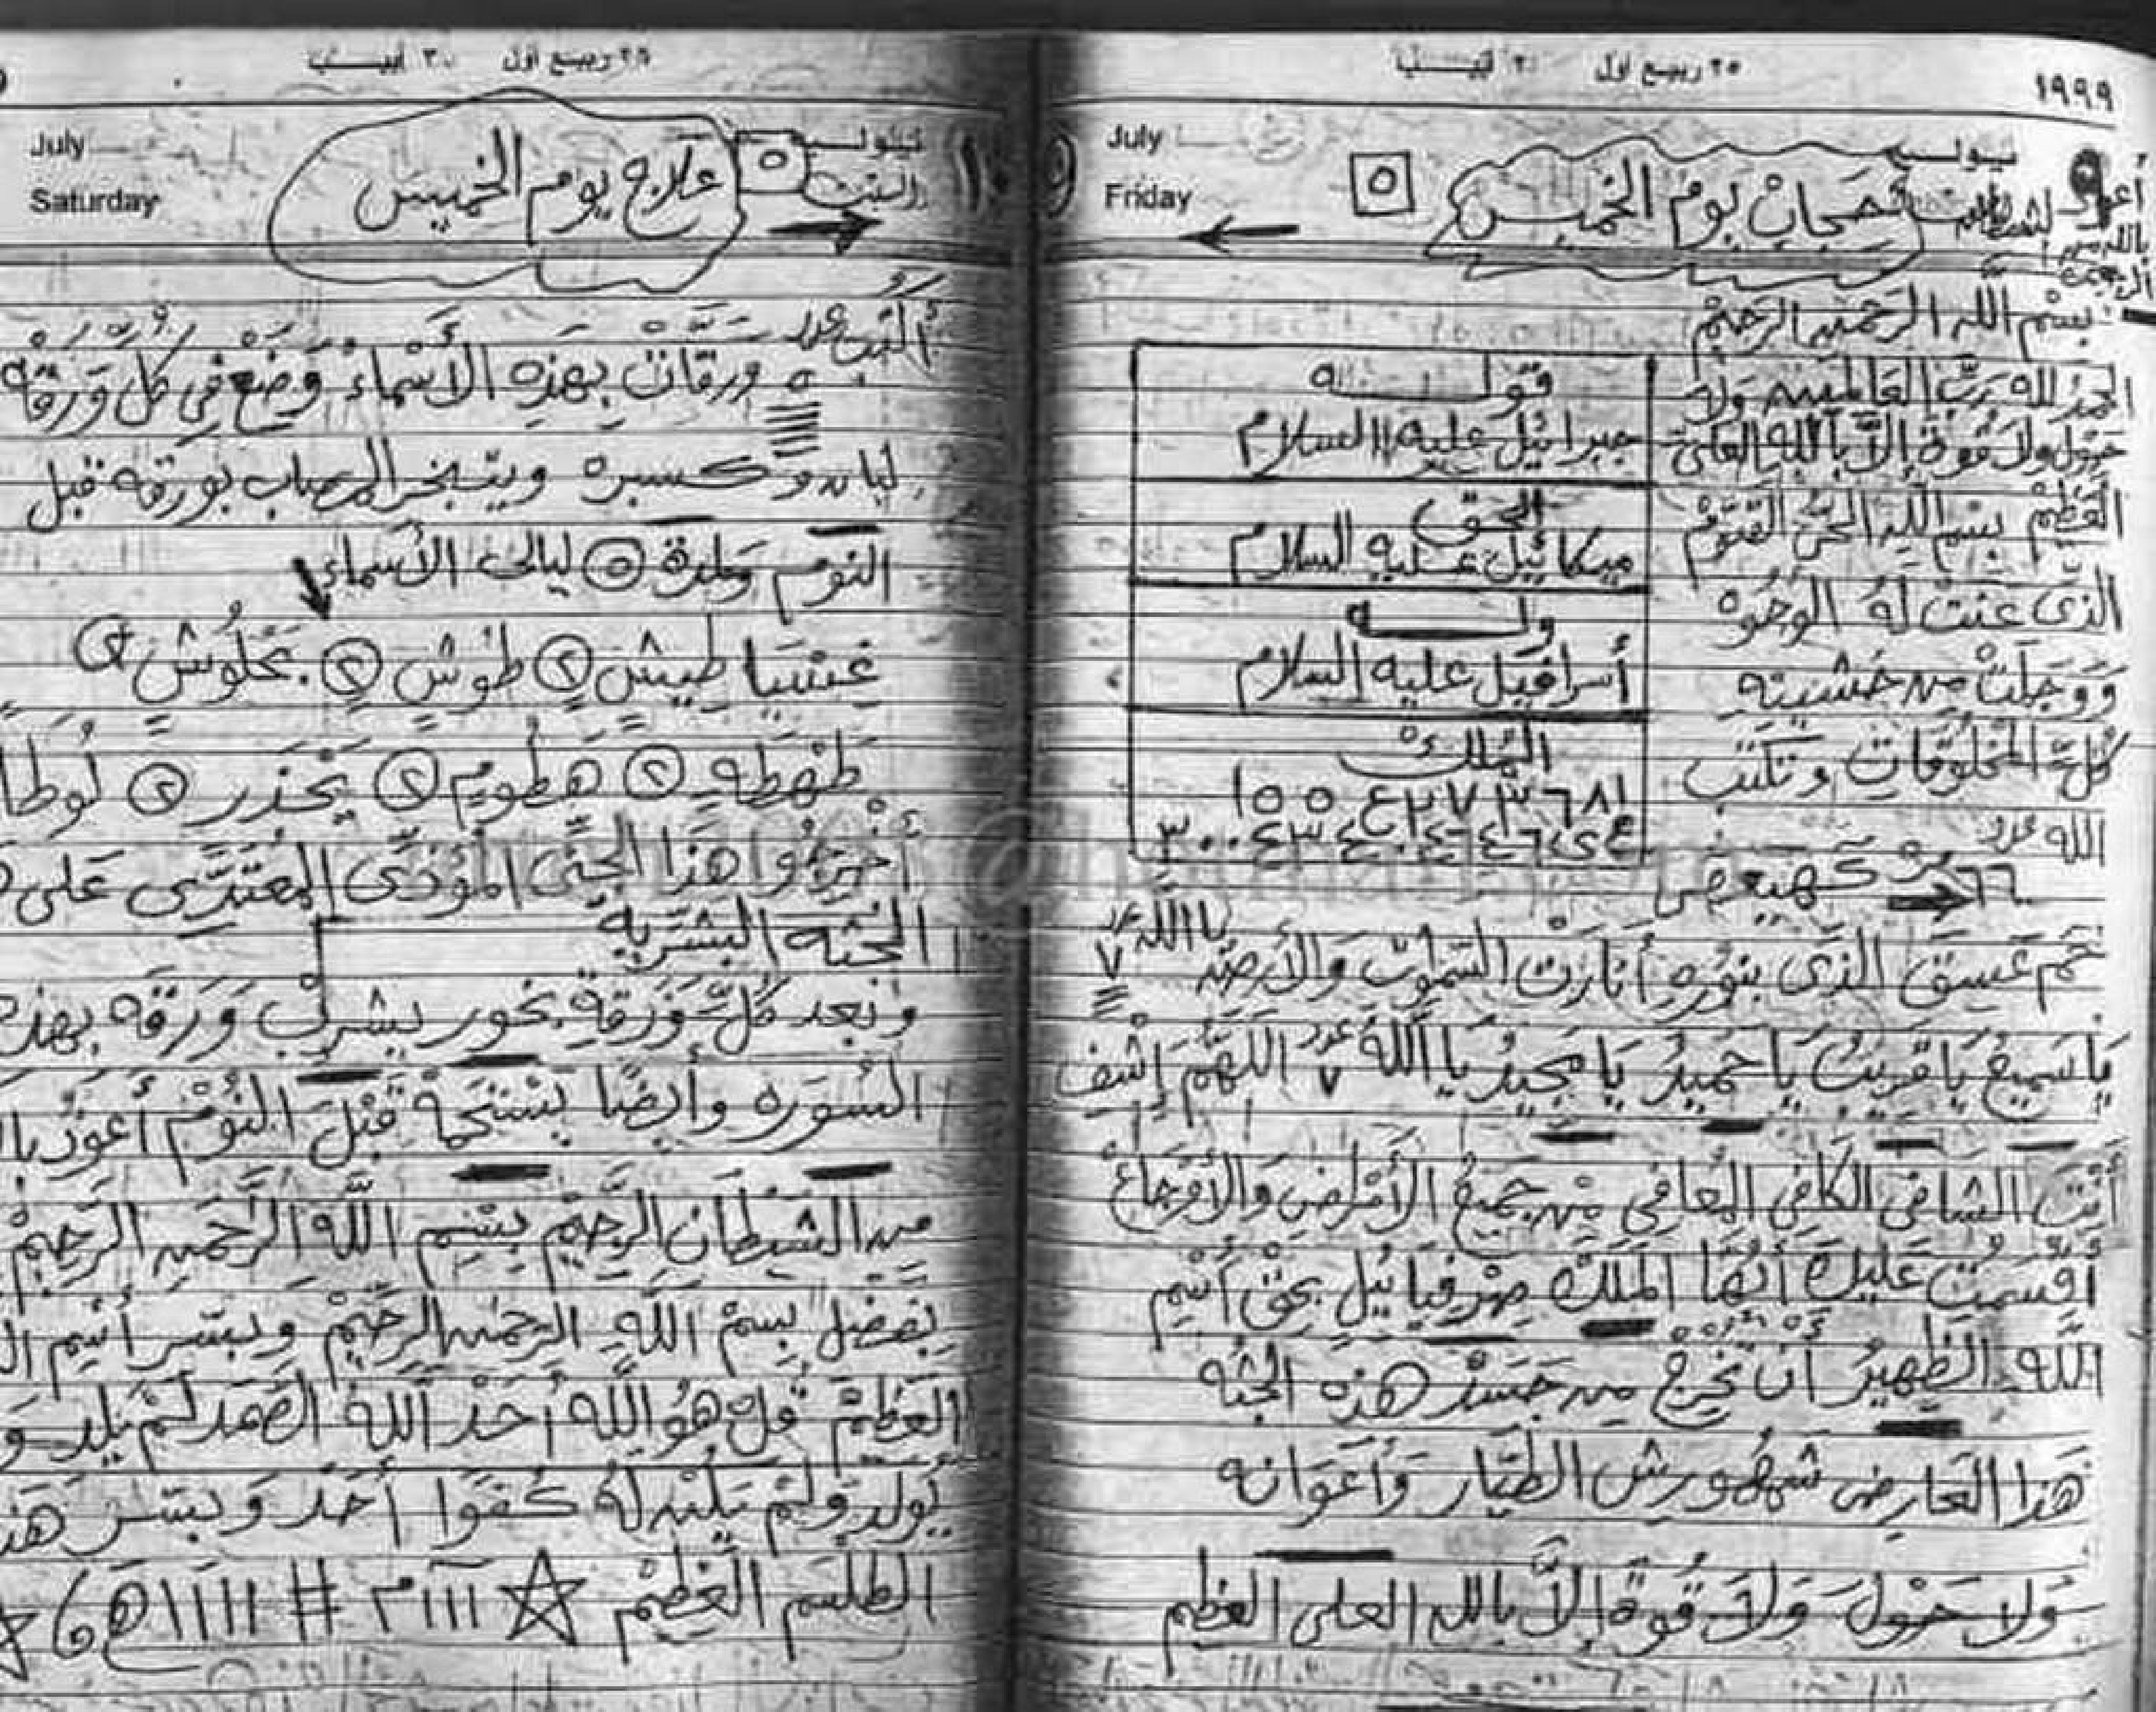 ١٩٩٩
٢٥ ربيع أول
July
Friday
يوليو
٩
حجاب يوم الخميس
٥
أعوذ بالله من الشيطان الرجيم
بِسْمِ اللهِ الرَّحمن الرَّحِيمْ
الحمدُ لله رَبِّ العَالمين وَلا
حَوْلَ ولا قُوةَ إلاَّ بالله العَلى
العَظِيْم بِسْم اللهِ الحَىِّ القَيُّومْ
الذى عَنَتْ لَهُ الوُجُوه
وَوَجِلَتْ مِن خَشْيَتِهِ
كُلّ المَخلُوقَات وتكتب
الله عدد
٦٦ مرة كهيعص
قولـــه
جبرائيل عليه السلام
الحق
ميكائيل عليه السلام
ولـــه
أسرافيل عليه السلام
المُلكْ
حَم عَسِقَ الذَى بِنُورِهِ أَنَارَتْ السَّمَوات وَالأَرض يا الله عدد ٧
يَا سَمِيعُ يَا قَرِيبُ يَا حَمِيدُ يَا مَجِيدُ يَا اللهُ عدد ٧ اللَهُمَّ إشْفِ
أَنْتَ الشافى الكَافى المُعَافى مِنْ جَمِيعْ الأَمْرَاض وَالأَوْجَاعْ
أَقْسَمْتُ عَليك أَيُّهَا المَلَكْ صِرْفيَائيل بحَقْ أَسْمِ
اللَه الظَهِيرُ أَنْ تُخْرِج مِن جَسَدْ هَذِه الجُثَه
هَذا العَارِض شَمْهُورِش الطَيَّار وَأَعْوَانه
وَلا حَوْلَ وَلاَ قُوةَ إلاَّ بالله العلى العظيم
٢٦ ربيع أول
July
Saturday
يوليو
السبت
١٠
٥
علاج يوم الخميس
أكتب عدد
٥ ورقات بهَذِهِ الأَسْمَاءْ وَضَعْ فى كُلّ وَرَقَة
لبان و كسبره ويتبخر المصاب بورقه قبل
النوم لمدة ٥ ليالى الأَسماء
طيش ٢ طوش ٢
طَهْطَه ٢ هَطُوم ٢ ٢
أَخْرِجُوا هَذا الجِنِّى المُؤذِى المُعْتَدِّى عَلى
الجثه البشَرِيه
وبعد كُلّ وَرَقة بخور يشرب وَرَقَه بهذه
السُورَه وأيضًا يسْتَحِمَّ قَبْلَ النُوْم أَعُوذُ
من الشيطان الرَّجِيْم بِسْمِ اللَّه الرَّحْمَن الرَّحِيمْ
بِفَضْل بِسمْ اللَه الرحمن الرَحِيْم وبسر أَسْمِ
العَظِيمْ قُلْ هُوَ اللَّه أَحَدْ اللَّهُ الصَّمَد لَمْ يَلِد وَ
يُولد وَلَمْ يَكُن لَهُ كُفُوَا أَحَد وَبسر هَذ
الطلسم العَظِيْمْ